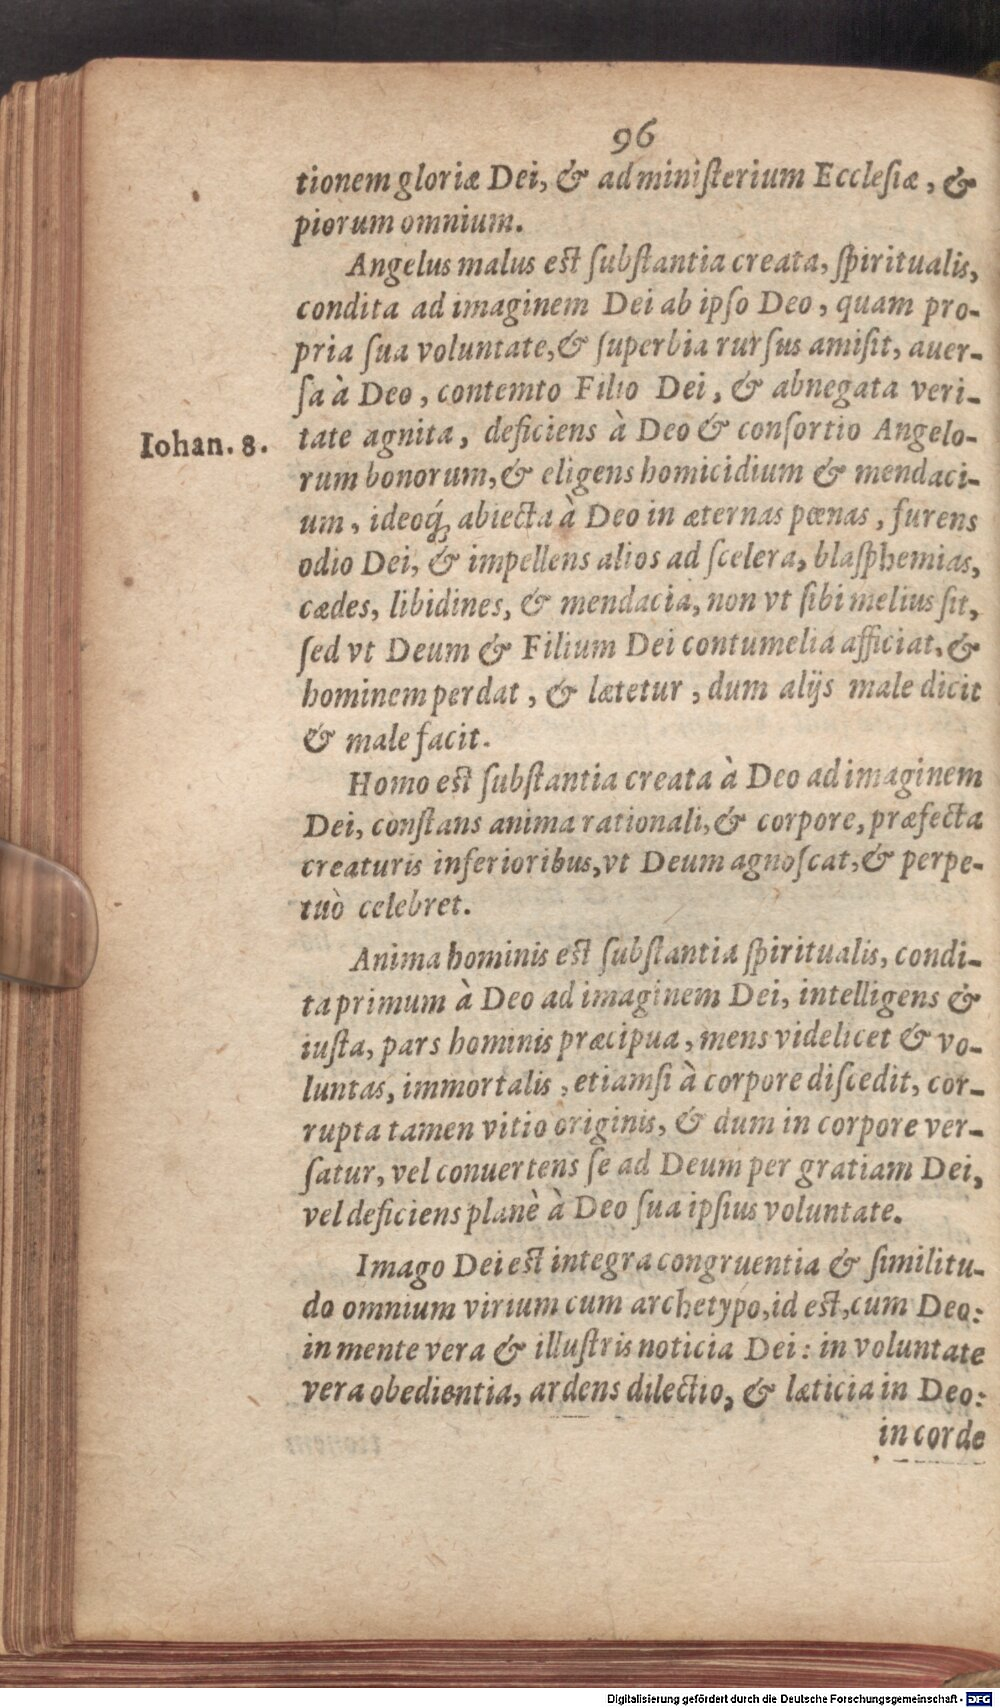 96
tionem gloriæ Dei, & ad ministerium Ecclesiæ, &
piorum omnium.
Angelus malus est substantia creata, spiritualis,
condita ad imaginem Dei ab ipso Deo, quam pro-
pria sua voluntate, & superbia rursus amisit, auer-
sa à Deo, contemto Filio Dei, & abnegata veri-
Iohan. 8.
tate agnita, deficiens à Deo & consortio Angelo-
rum bonorum, & eligens homicidium & mendaci-
um, ideoq́; abiecta à Deo in æternas pœnas, furens
odio Dei, & impellens alios ad scelera, blasphemias,
cædes, libidines, & mendacia, non vt sibi melius sit,
sed vt Deum & Filium Dei contumelia afficiat, &
hominem perdat, & lætetur, dum alijs male dicit
& male facit.
Homo est substantia creata à Deo ad imaginem
Dei, constans anima rationali, & corpore, præfecta
creaturis inferioribus, vt Deum agnoscat, & perpe-
tuò celebret.
Anima hominis est substantia spiritualis, condi-
ta primum à Deo ad imaginem Dei, intelligens &
iusta, pars hominis præcipua, mens videlicet & vo-
luntas, immortalis, etiamsi à corpore discedit, cor-
rupta tamen vitio originis, & dum in corpore ver-
satur, vel conuertens se ad Deum per gratiam Dei,
vel deficiens planè à Deo sua ipsius voluntate.
Imago Dei est integra congruentia & similitu-
do omnium virium cum archetypo, id est, cum Deo:
in mente vera & illustris noticia Dei: in voluntate
vera obedientia, ardens dilectio, & læticia in Deo:
in corde
Digitalisierung gefördert durch die Deutsche Forschungsgemeinschaft - DFG